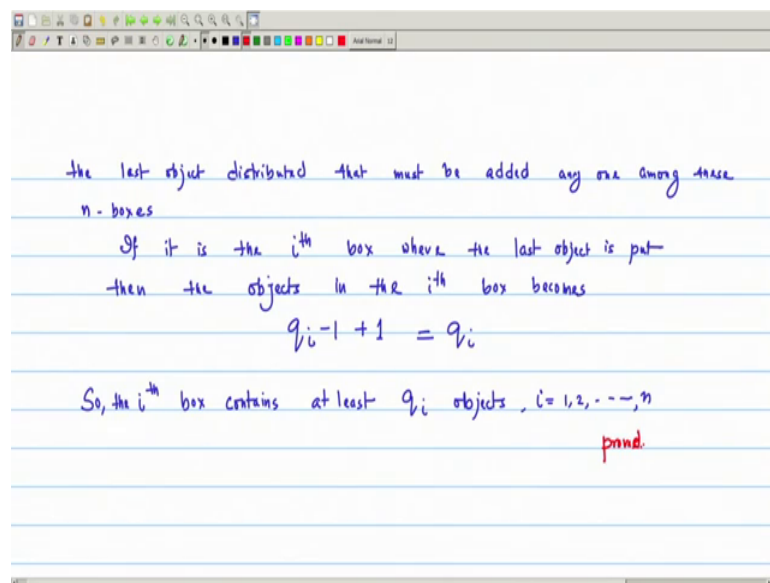 Arial Normal 12
the last object distributed that must be added any one among these
n-boxes
If it is the i^th box where the last object is put
then the objects in the i^th box becomes
q_i - 1 + 1 = q_i
So, the i^th box contains at least q_i objects, i = 1, 2, - - - -, n
proved.